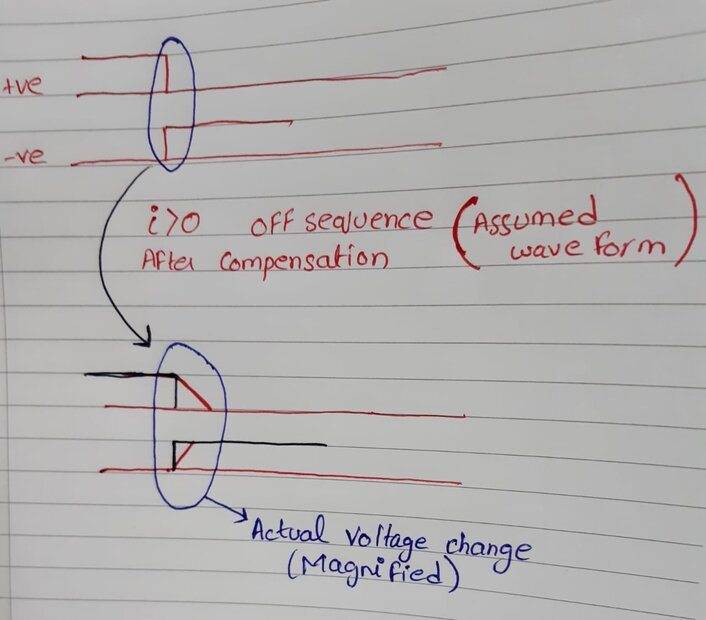 +ve
-ve
i>0 off sequence (Assumed
After compensation wave form)
Actual voltage change
(Magnified)